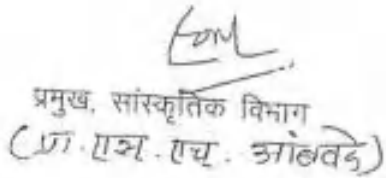 प्रमुख, सांस्कृतिक विभाग
(प्रा. एस. एच. आंबवडे)